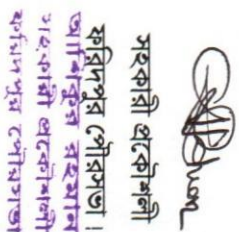 সহকারী প্রকৌশলী
ফরিদপুর পৌরসভা।
রহমান
সহকারী প্রকৌশলী
ফরিদপুর পৌরসভা